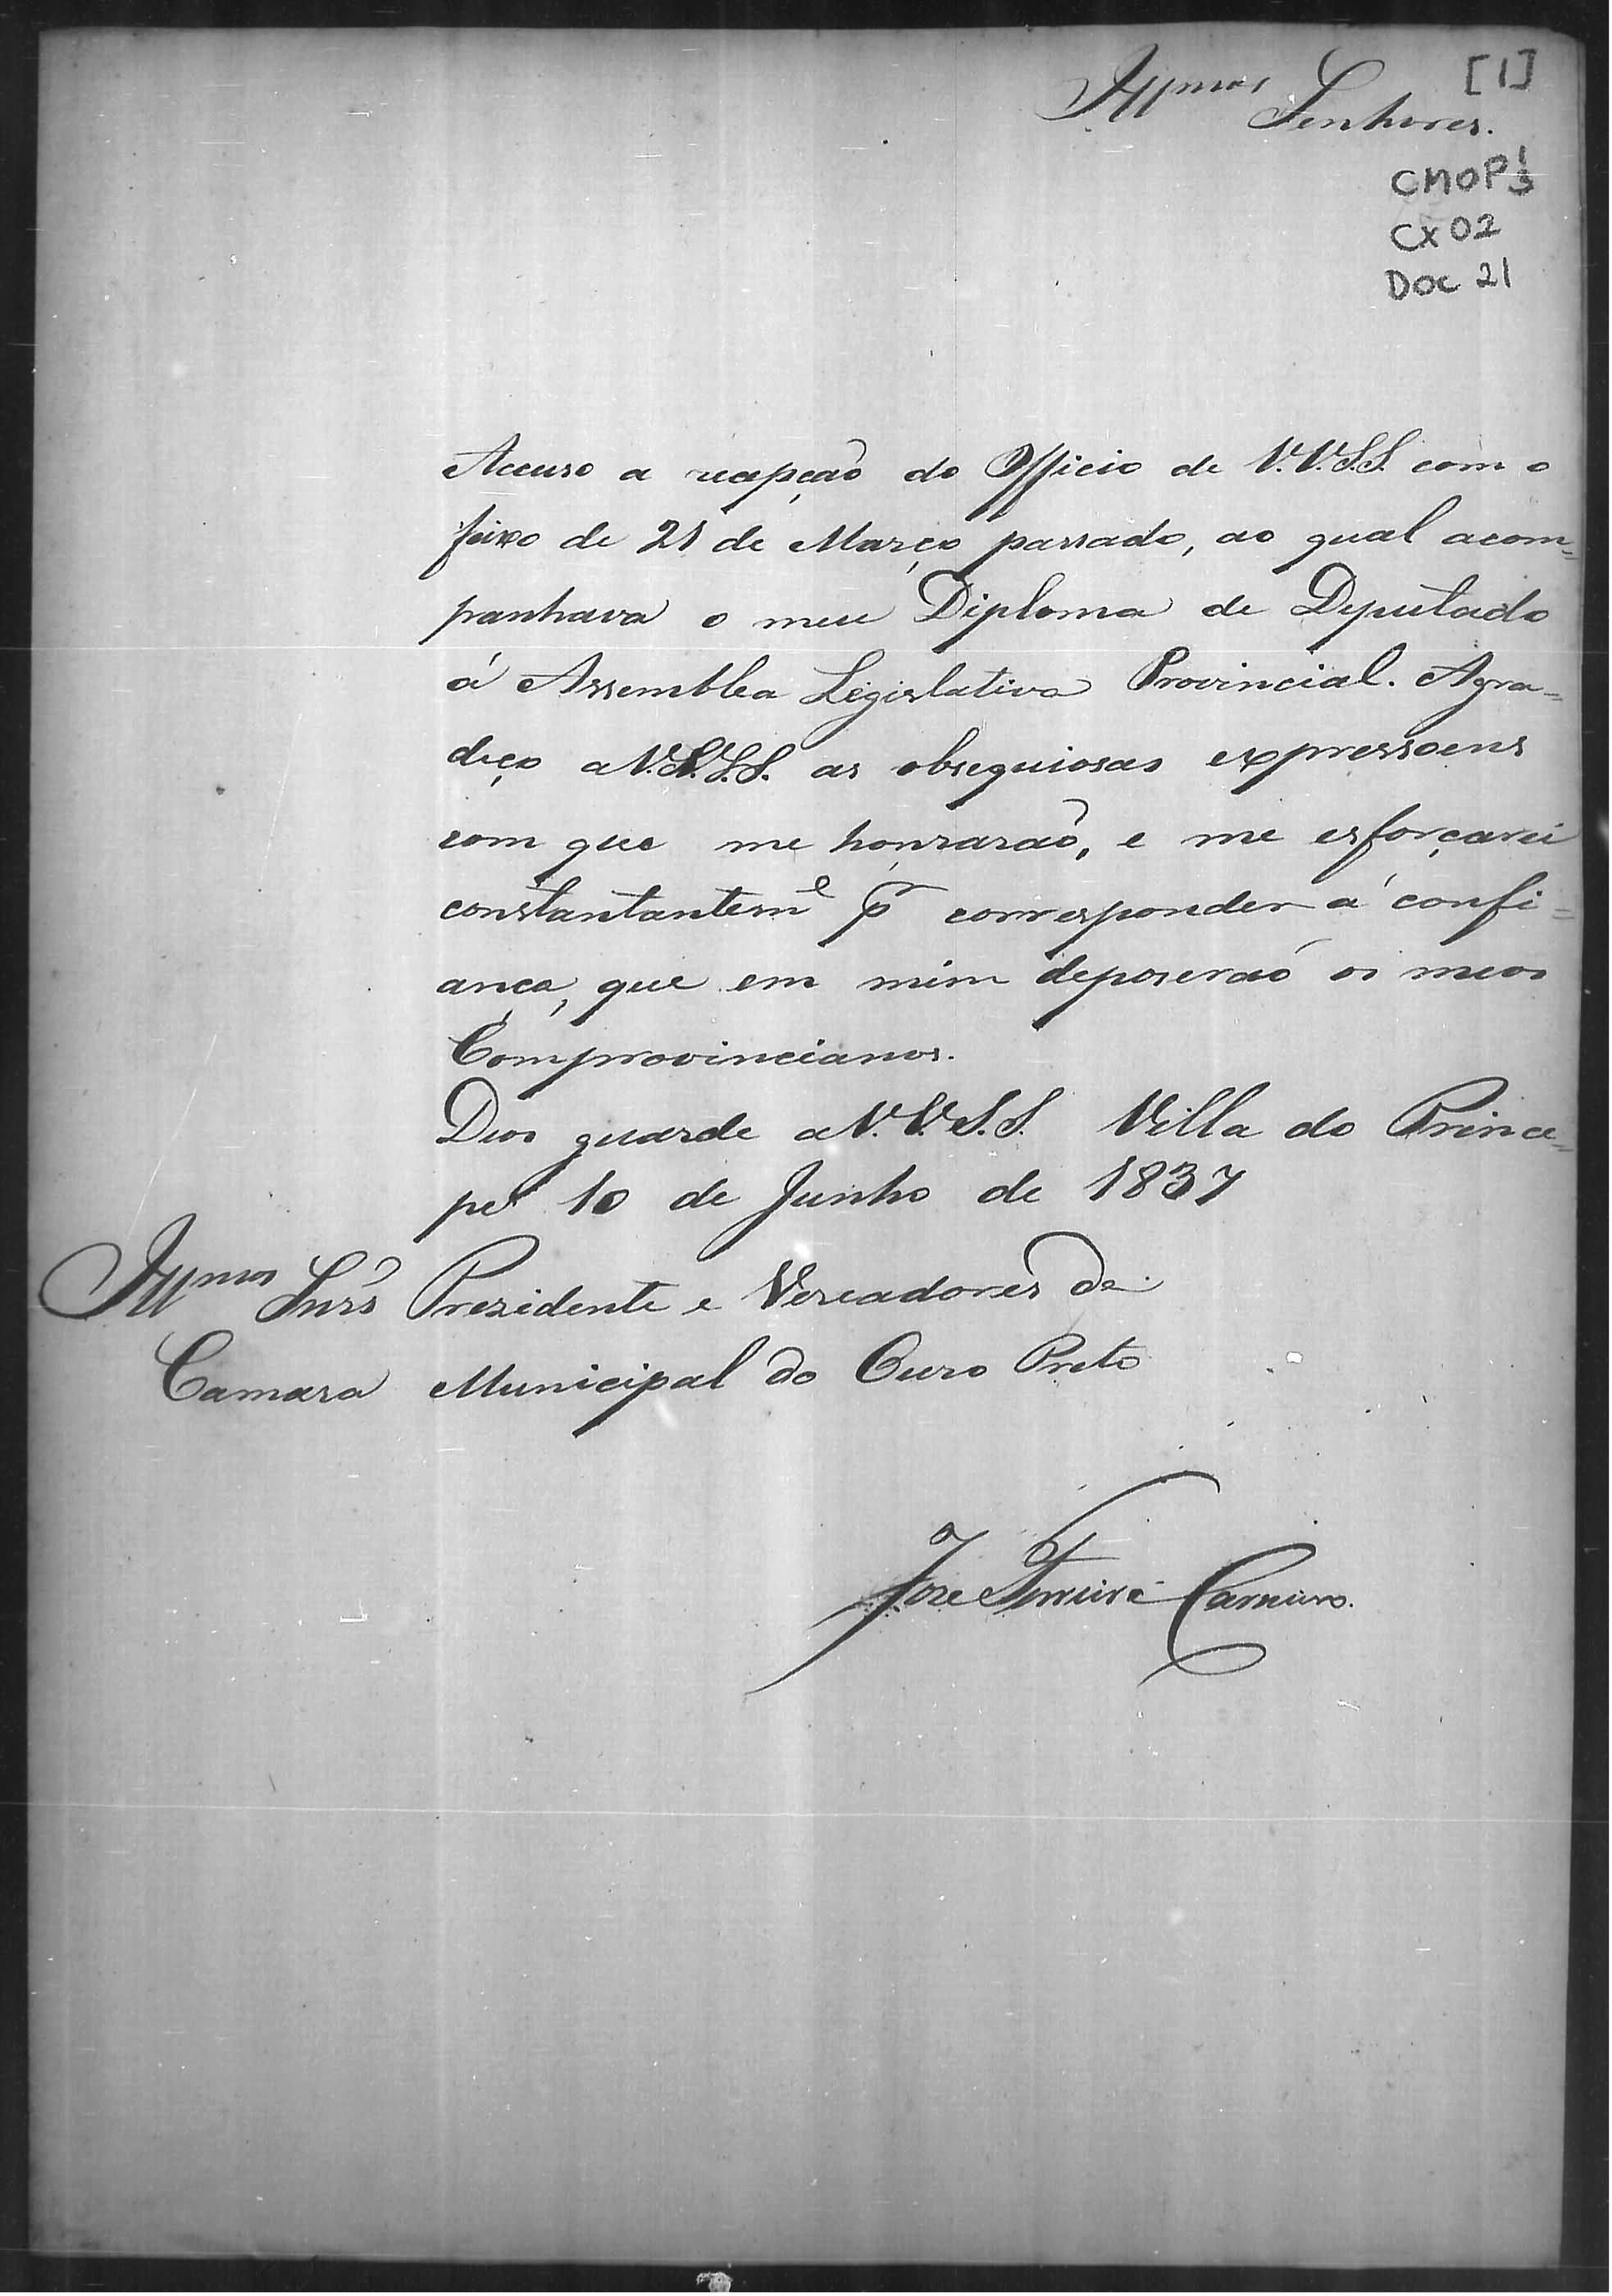 Illmos Senhores.
[1]
CMOP 1/3
CX 02
DOC 21
Accuso a recepção do Officio de V.V.S.S. com o
feixo de 21 de Março passado, ao qual acom=
panhava o meu Diploma de Deputado
á Assemblea Legislativa Provincial. Agra=
deço a V.V.S.S. as obsequiosas expressoens
com que me honrarão, e me esforçarei
constantantemᵉ pᵃ corresponder á confi=
ança, que em mim deposerão os meos
Comprovincianos.
Deos guarde a V.V.S.S. Villa do Prince=
pe 10 de Junho de 1837
Illmos Snrs Prezidente e Vereadores da
Camara Municipal do Ouro Preto
Jose Ferreira Carneiro.